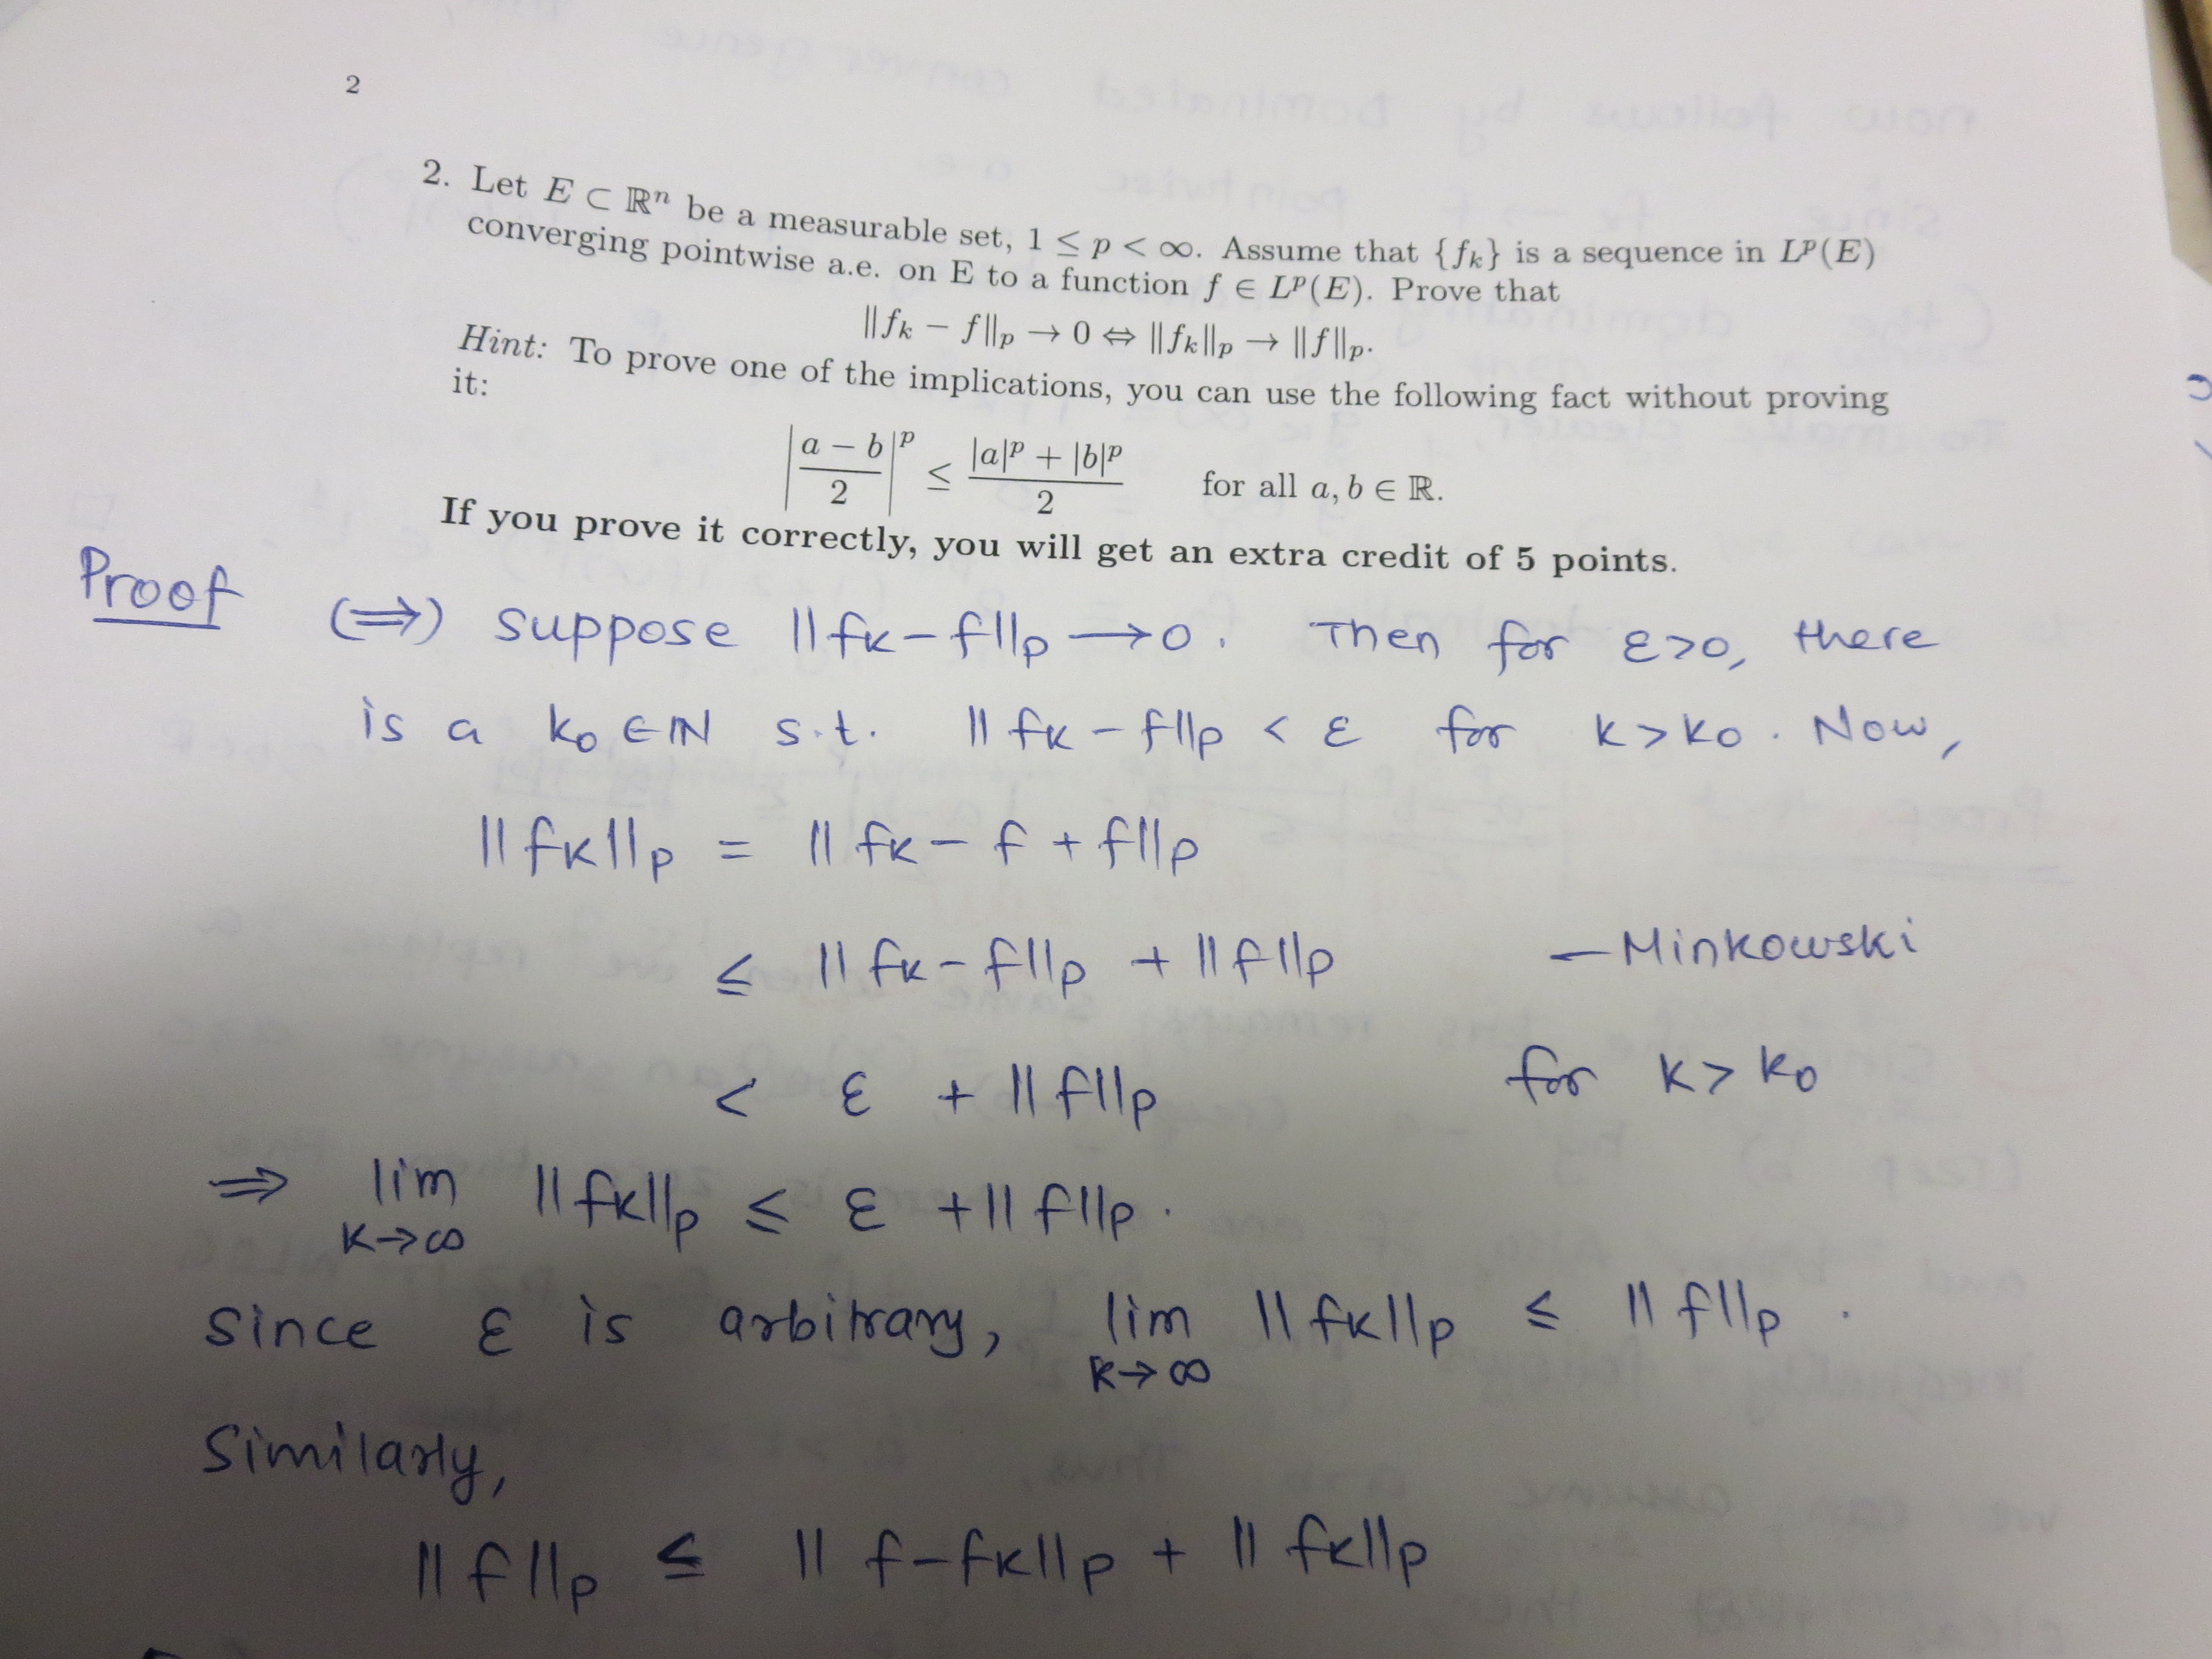 2
2. Let E ⊂ ℝⁿ be a measurable set, 1 ≤ p < ∞. Assume that {fₖ} is a sequence in Lᵖ(E)
converging pointwise a.e. on E to a function f ∈ Lᵖ(E). Prove that
‖fₖ − f‖ₚ → 0 ⇔ ‖fₖ‖ₚ → ‖f‖ₚ.
Hint: To prove one of the implications, you can use the following fact without proving
it:
|(a − b)/2|ᵖ ≤ (|a|ᵖ + |b|ᵖ)/2 for all a, b ∈ ℝ.
If you prove it correctly, you will get an extra credit of 5 points.
Proof (⇒) suppose ‖fₖ − f‖ₚ → 0. Then for ε>0, there
is a k₀ ∈ ℕ s.t. ‖fₖ − f‖ₚ < ε for k > k₀. Now,
‖fₖ‖ₚ = ‖fₖ − f + f‖ₚ
≤ ‖fₖ − f‖ₚ + ‖f‖ₚ — Minkowski
< ε + ‖f‖ₚ for k > k₀
⇒ lim k→∞ ‖fₖ‖ₚ ≤ ε + ‖f‖ₚ.
Since ε is arbitrary, lim k→∞ ‖fₖ‖ₚ ≤ ‖f‖ₚ.
Similarly,
‖f‖ₚ ≤ ‖f − fₖ‖ₚ + ‖fₖ‖ₚ